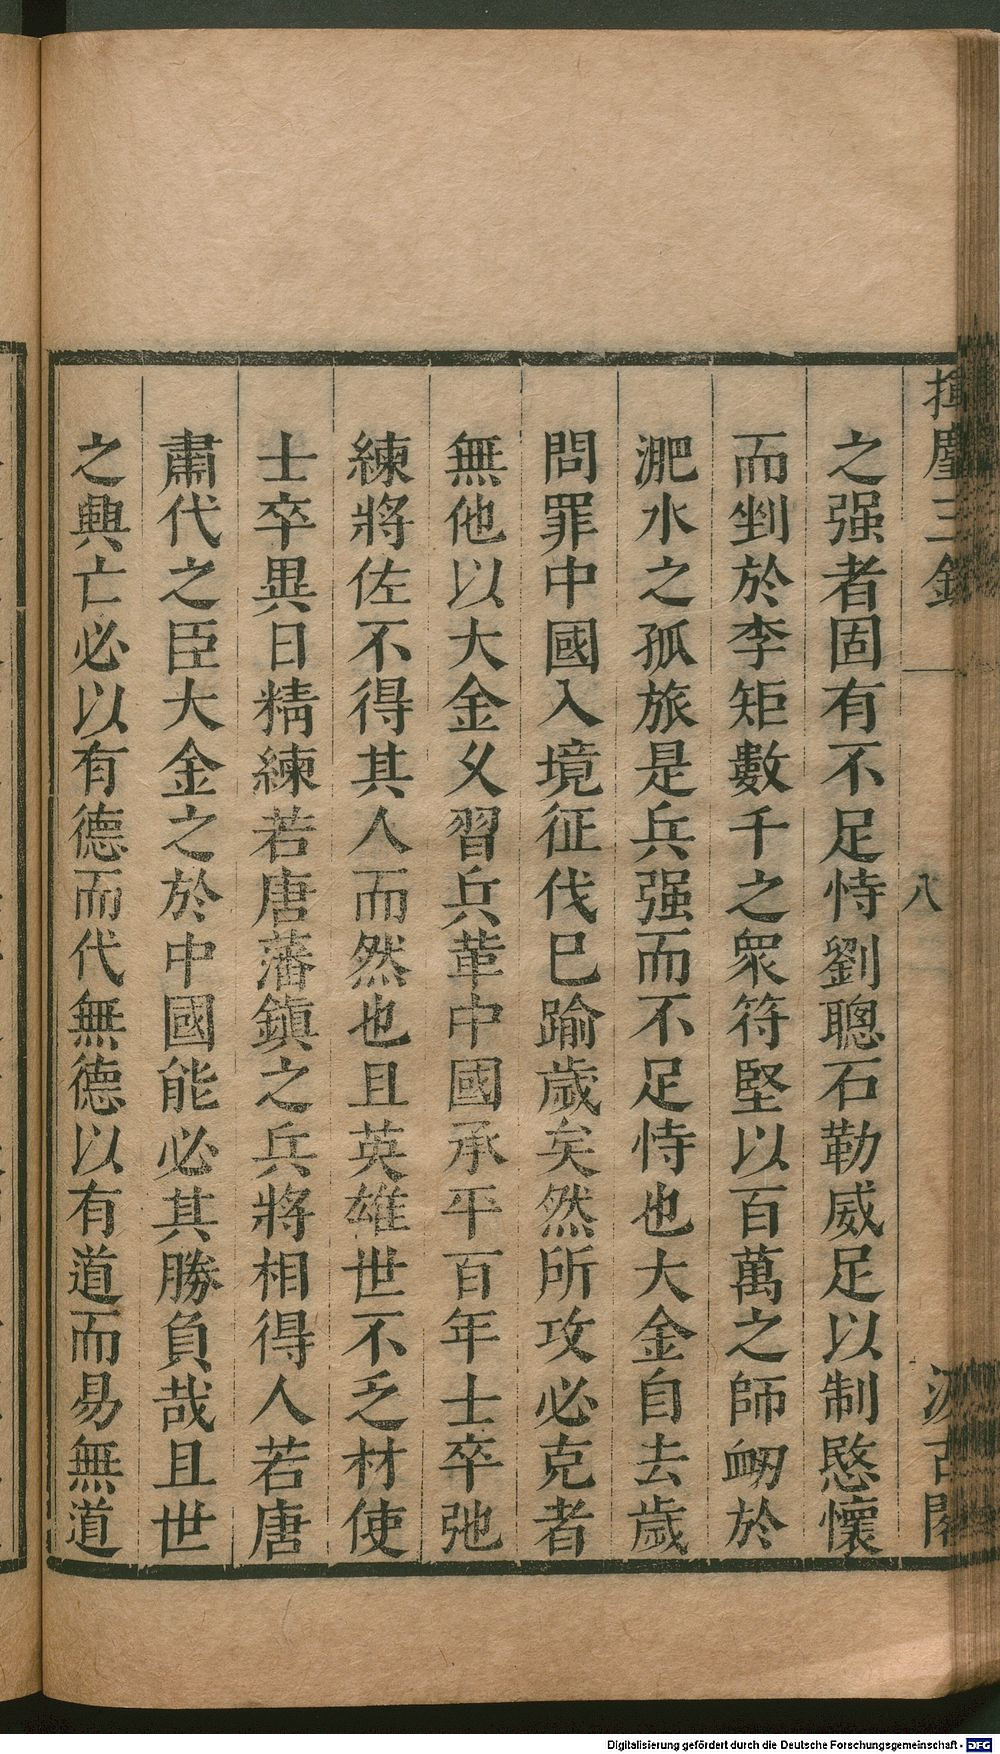 揮麈三錄
八
汲古閣
之强者固有不足恃劉聰石勒威足以制愍懷
而剉於李矩數千之衆符堅以百萬之師衂於
淝水之孤旅是兵强而不足恃也大金自去歲
問罪中國入境征伐巳踰歲矣然所攻必克者
無他以大金乆習兵革中國承平百年士卒弛
練將佐不得其人而然也且英雄世不乏材使
士卒異日精練若唐藩鎭之兵將相得人若唐
肅代之臣大金之於中國能必其勝負哉且世
之興亡必以有德而代無德以有道而易無道
Digitalisierung gefördert durch die Deutsche Forschungsgemeinschaft - DFG